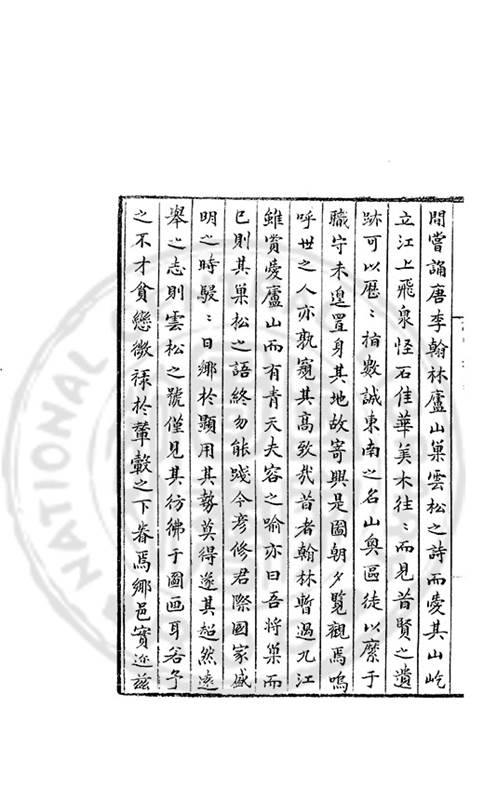 間嘗誦唐李翰林廬山巢雲松之詩而愛其山屹
立江上飛泉怪石佳華美木徃〻而見昔賢之遺
跡可以歷〻指數誠東南之名山奥區徒以縻于
職守未遑置身其地故寄興是圖朝夕覧觀焉嗚
呼世之人亦孰窺其高致㢤昔者翰林暫過九江
雖賞愛廬山而有青天夫容之喻亦曰吾將巢而
已則其巢松之語終勿能踐今彦修君際國家盛
明之時駸〻日鄉於顯用其勢莫得遂其超然遠
舉之志則雲松之號僅見其彷彿于圖画耳若予
之不才貪戀微禄於輦轂之下眷焉鄉邑實邇茲
NATIONAL